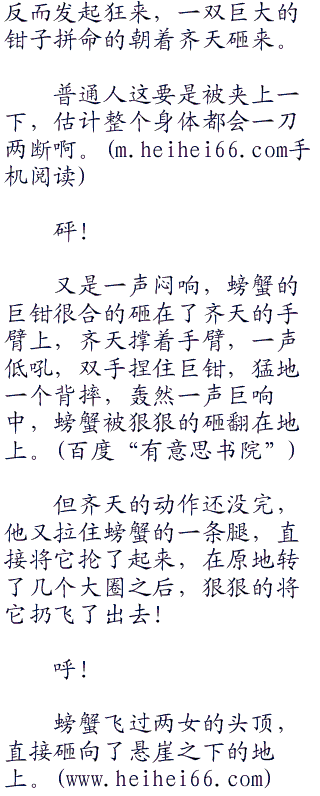 反而发起狂来，一双巨大的
钳子拼命的朝着齐天砸来。
普通人这要是被夹上一
下，估计整个身体都会一刀
两断啊。(m.heihei66.com手
机阅读)
砰！
又是一声闷响，螃蟹的
巨钳很合的砸在了齐天的手
臂上，齐天撑着手臂，一声
低吼，双手捏住巨钳，猛地
一个背摔，轰然一声巨响
中，螃蟹被狠狠的砸翻在地
上。(百度“有意思书院”)
但齐天的动作还没完，
他又拉住螃蟹的一条腿，直
接将它抡了起来，在原地转
了几个大圈之后，狠狠的将
它扔飞了出去！
呼！
螃蟹飞过两女的头顶，
直接砸向了悬崖之下的地
上。(www.heihei66.com)